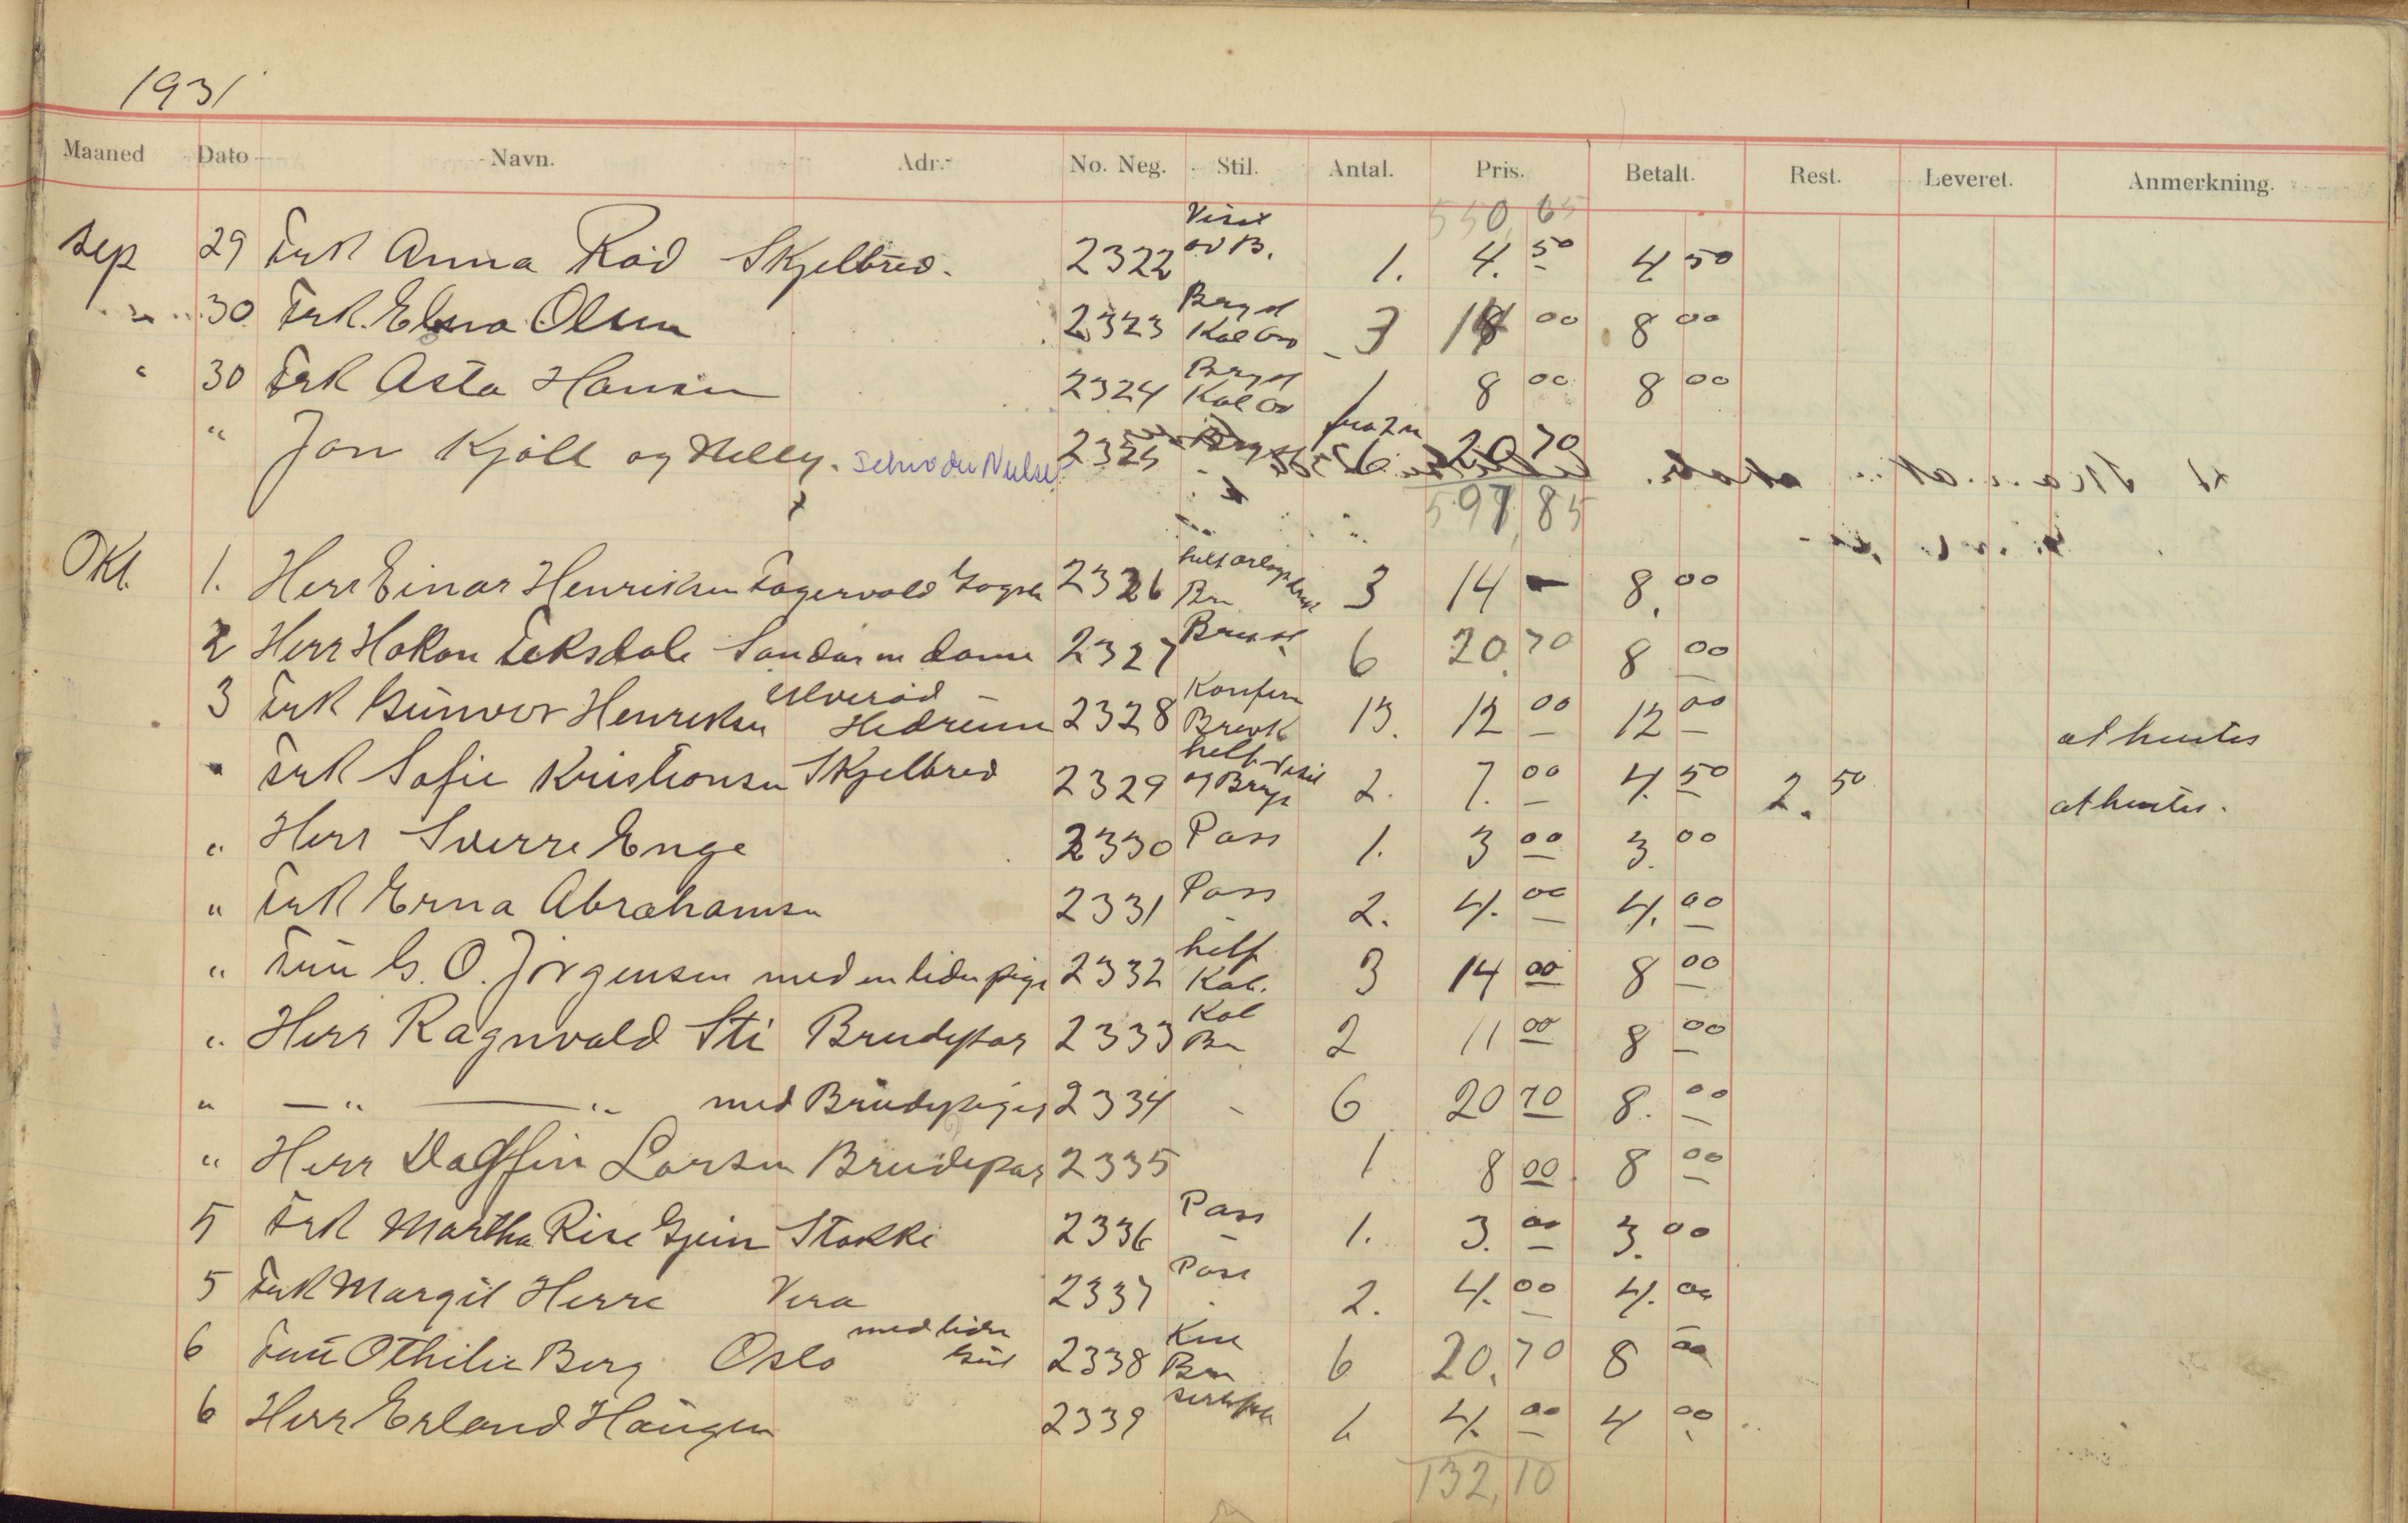 1931
Maaned Dato Navn. Adr. No. Neg. Stil. Antal. Pris. Betalt. Rest. Leveret. Anmerkning.
550,65
Sep 29 Frk Anna Röd Skjelbred. 2322 Visit ov B. 1. 4.50 4 50
" 30 Frk. Elna Olsen 2323 3 8 00 8 00
" 30 Frk Asta Hansen 2324 1 8 00 8 00
" Jon Kjöll og Nelly. 2325 6 20 70
597,85
Okt. 1. Herr Einar Henriksen Fagervold 2326 Br 3 14 - 8.00
2 Herr Hakon Eeksdale Sandar m dame 2327 Brust 6 20.70 8 00
3 Frk Gunvor Henriksen Ulveröd - Hedrum 2328 Konfirm Brevk 13. 12 00 12 00 at hentes
" Frk Sofie Kristiansen Skjelbred 2329 helf. visit og Bryst 2. 7.00 4.50 2.50 at hentes.
" Herr Sverre Enge 2330 Pass 1. 3 00 3.00
" Frk Erna Abrahamsen 2331 Pass 2. 4.00 4.00
" Fru G. O. Jörgensen med en liden pige 2332 helf Kab. 3 14 00 8 00
" Herr Ragnvald Sti Brudepar 2333 Kab Br 2 11 00 8 00
" — " — " med Brudepiger 2334 - 6 20 70 8.00
" Herr Dagfin Larsen Brudepar 2335 1 8 00 8 00
5 Frk Martha Rise Gjein Stokke 2336 Pass 1. 3.00 3.00
5 Frk Margit Herre Vera 2337 Pass 2. 4.00 4.00
6 Fru Othilie Berg Oslo med liden Gut 2338 Kne Br 6 20.70 8 00
6 Herr Erland Haugen 2339 4.00 4 00
132,10